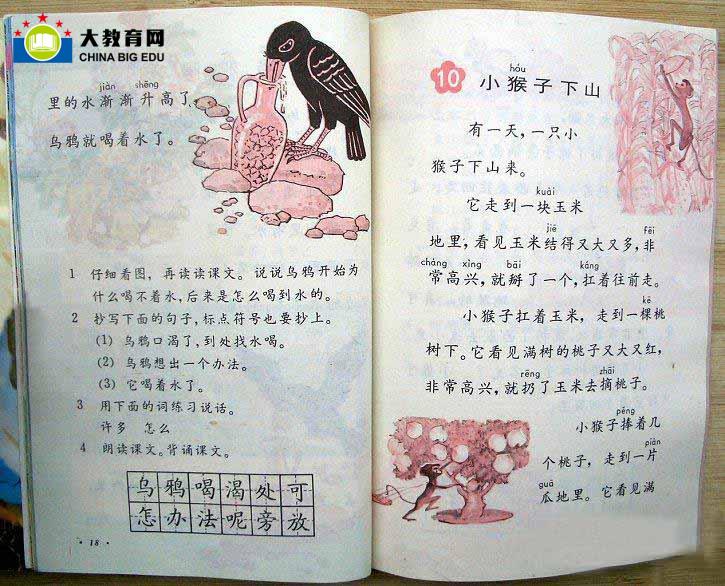 大教育网
CHINA BIG EDU
jiàn shēng
里的水渐渐升高了,
乌鸦就喝着水了。
1 仔细看图，再读读课文。说说乌鸦开始为
什么喝不着水，后来是怎么喝到水的。
2 抄写下面的句子，标点符号也要抄上。
(1) 乌鸦口渴了，到处找水喝。
(2) 乌鸦想出一个办法。
(3) 它喝着水了。
3 用下面的词练习说话。
许多 怎么
4 朗读课文。背诵课文。
乌鸦喝渴处可
怎办法呢旁放
·18·
hóu
10 小猴子下山
有一天，一只小
猴子下山来。
kuài
它走到一块玉米
jiē fēi
地里，看见玉米结得又大又多，非
cháng xìng bāi káng
常高兴，就掰了一个，扛着往前走。
kē
小猴子扛着玉米，走到一棵桃
树下。它看见满树的桃子又大又红，
rēng zhāi
非常高兴，就扔了玉米去摘桃子。
pěng
小猴子捧着几
piàn
个桃子，走到一片
guā
瓜地里。它看见满